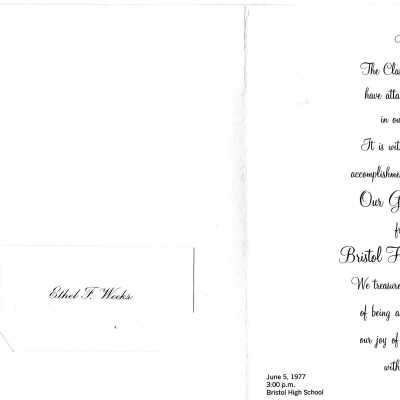 Ethel F. Weeks
The Cla
have atta
in ou
It is wit
accomplishme
Our G
fr
Bristol
We treasure
of being a
our joy of
with
June 5, 1977
3:00 p.m.
Bristol High School